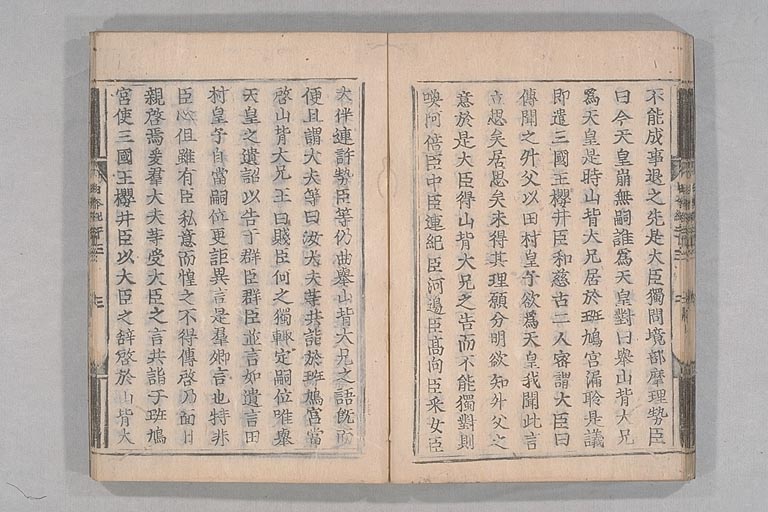 不能成事退之先是大臣獨問境部摩理勢臣
曰今天皇崩無嗣誰爲天皇對曰舉山背大兄
爲天皇是時山背大兄居於斑鳩宮漏聆是議
即遣三國王櫻井臣和慈古二人密謂大臣曰
傳聞之舛父以田村皇子欲爲天皇我聞此言
立思矣居思矣未得其理願分明欲知外父之
意於是大臣得山背大兄之告而不能獨對則
喚阿倍臣中臣連紀臣河邊臣高向臣采女臣
大伴連許勢臣等仍曲舉山背大兄之語既而
便且謂大夫等曰汝大夫等共詣於斑鳩宮當
啓山背大兄王曰賤臣何之獨輙定嗣位唯舉
天皇之遺詔以告于群臣群臣並言如遺言田
村皇子自當嗣位更詎異言是羣卿言也特非
臣心但雖有臣私意而惶之不得傳啓乃面日
親啓焉爰羣大夫等受大臣之言共詣于斑鳩
宮使三國王櫻井臣以大臣之辭啓於山背大